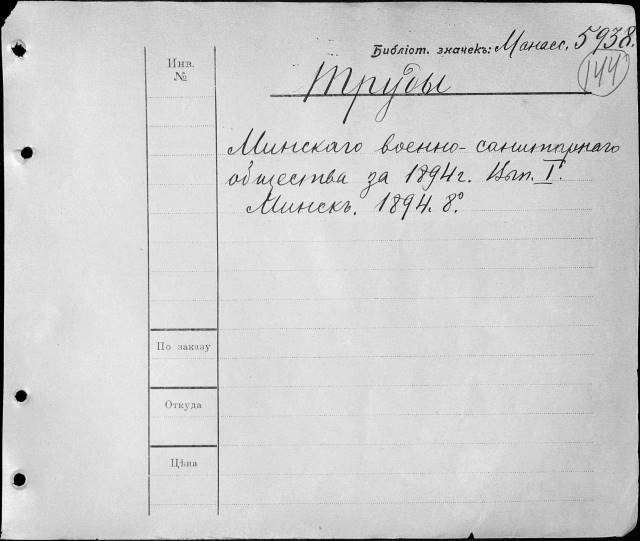 Библіот. значекъ: Манасс. 5938.
144
Инв.
№
Труды
Минскаго военно-санитарнаго
общества за 1894 г. Вып. I.
Минскъ. 1894. 8°
По заказу
Откуда
Цѣна